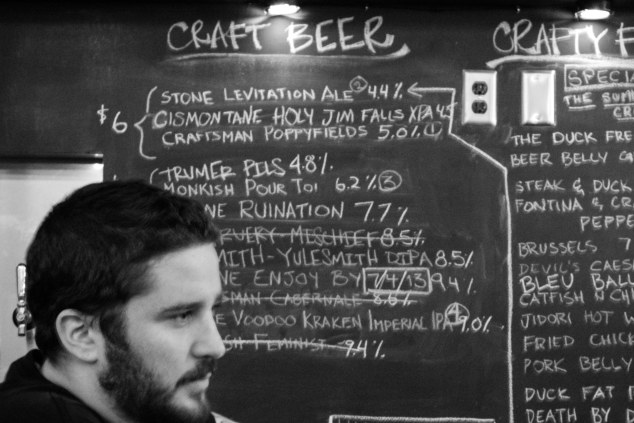 CRAFT BEER
$6
STONE LEVITATION ALE ② 4.4%
CISMONTANE HOLY JIM FALLS XPA 4.5
CRAFTSMAN POPPYFIELDS 5.0% ①
TRUMER PILS 4.8%
MONKISH POUR TOI 6.2% ③
NE RUINATION 7.7%
RUERY MISCHIEF 8.5%
MITH-YULESMITH DIPA 8.5%
NE ENJOY BY 7/4/13 9.4%
SMAN CABERNALE 8.6%
E VOODOO KRAKEN IMPERIAL IPA ④ 9.0%
SH FEMINIST 9.4%
CRAFTY F
SPECI
THE SUM
CR
THE DUCK FRE
BEER BELLY
STEAK & DUCK
FONTINA & CR
PEPPE
BRUSSELS 7
DEVIL'S CAES
BLEU BALL
CATFISH N CH
JIDORI HOT W
FRIED CHICK
PORK BELLY
DUCK FAT
DEATH BY D